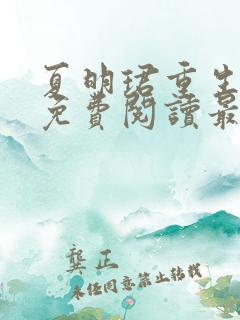 夏明珺重生
免費閱讀最
龔正
未經同意禁止轉載